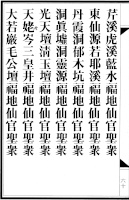 芹溪虎溪藍水福地仙官聖衆
東仙源若耶溪福地仙官聖衆
丹霞洞郁木坑福地仙官聖衆
洞眞墟洞靈源福地仙官聖衆
光天壇淸玉壇福地仙官聖衆
天姥岑三皇井福地仙官聖衆
大若巖毛公壇福地仙官聖衆